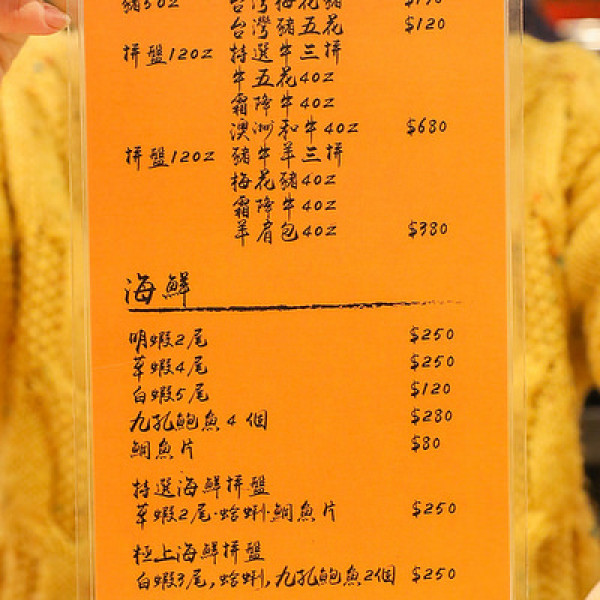 豬5oz 台灣梅花豬 $190
台灣豬五花 $120
拼盤12oz 特選牛三拼
牛五花4oz
霜降牛4oz
澳洲和牛4oz $680
拼盤12oz 豬牛羊三拼
梅花豬4oz
霜降牛4oz
羊肩包4oz $380
海鮮
明蝦2尾 $250
草蝦4尾 $250
白蝦5尾 $120
九孔鮑魚4個 $280
鯛魚片 $80
特選海鮮拼盤
草蝦2尾·蛤蜊·鯛魚片 $250
極上海鮮拼盤
白蝦3尾,蛤蜊,九孔鮑魚2個 $250